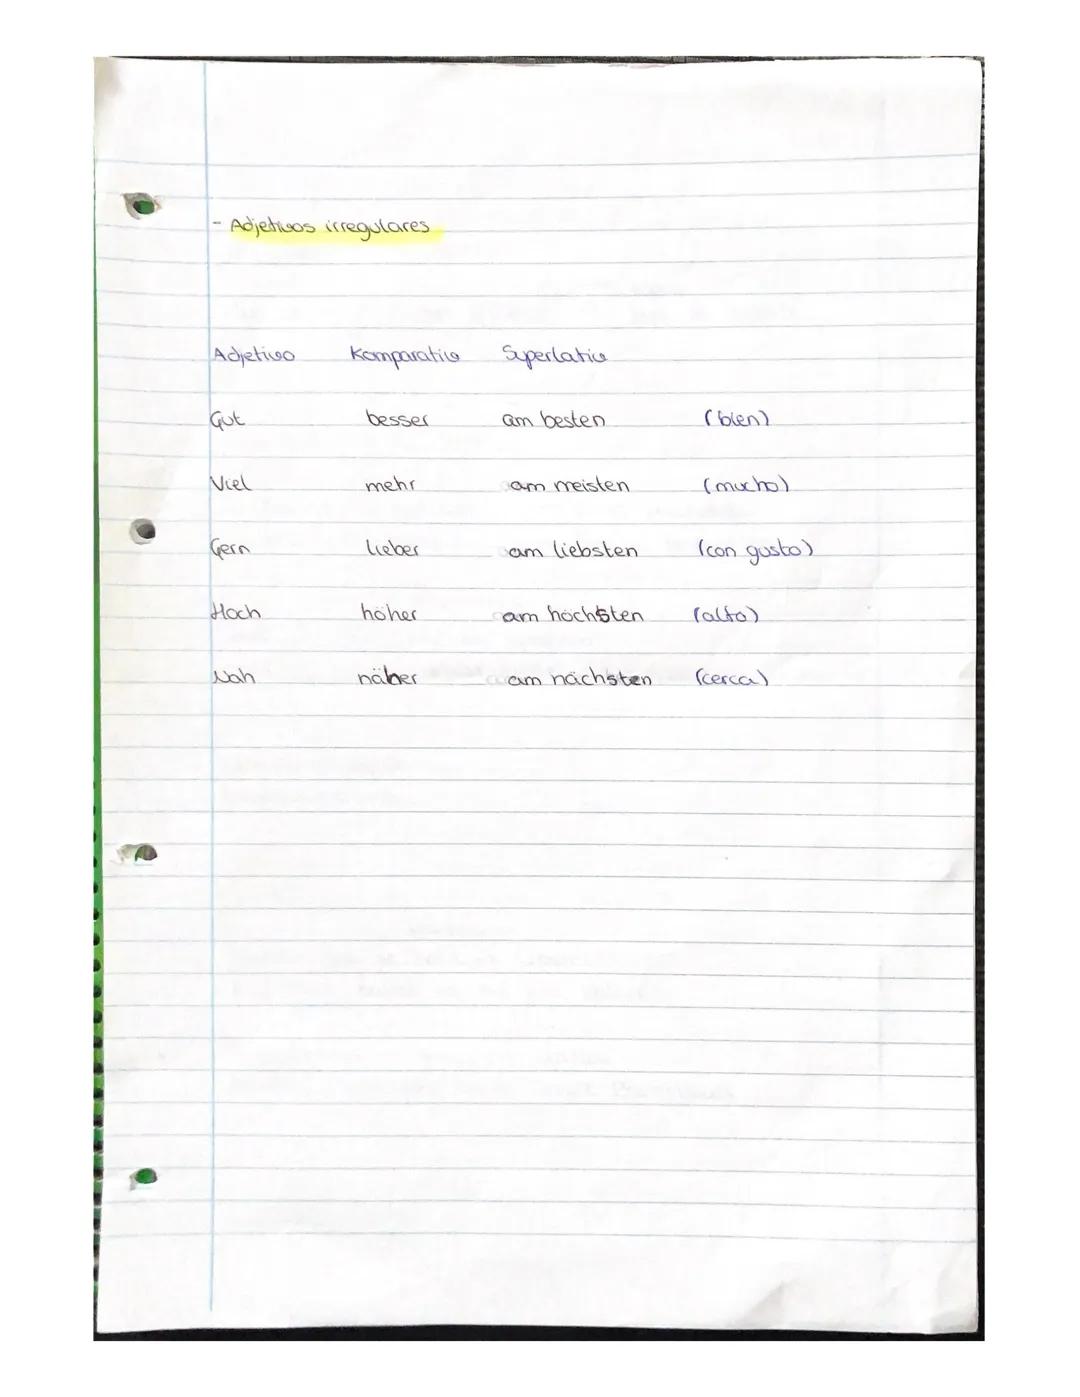 - Adjetivos irregulares
Adjetivo Komparativ Superlativ
Gut besser am besten (bien)
Viel mehr am meisten (mucho)
Gern lieber am liebsten (con gusto)
Hoch höher am höchsten (alto)
Nah näher am nächsten (cerca)